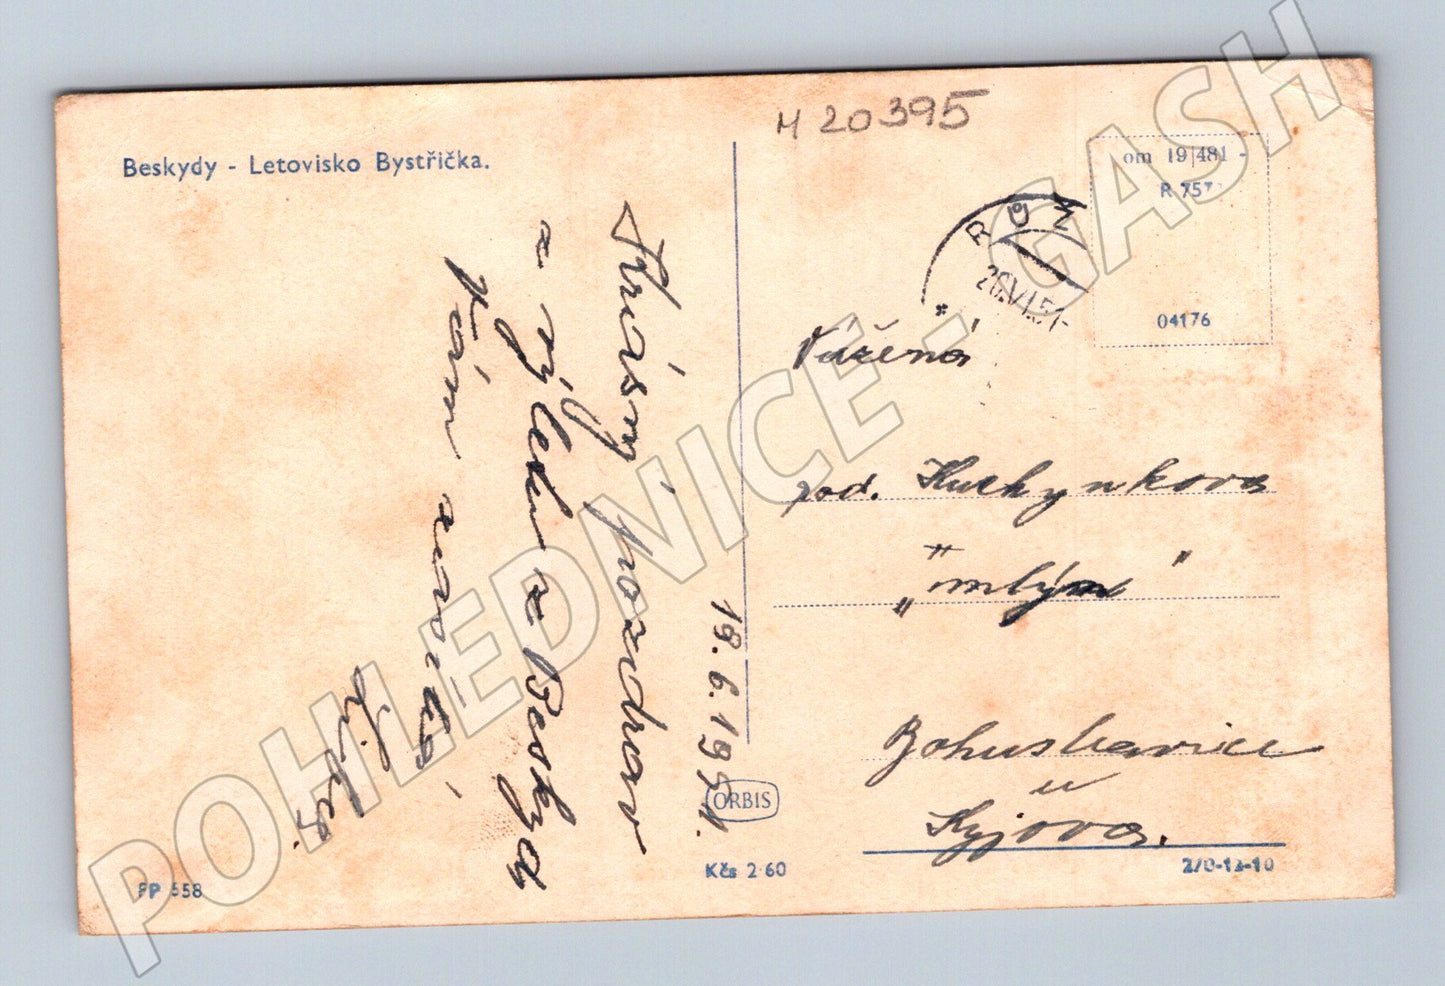 M 20395
Beskydy - Letovisko Bystřička.
om 19|481 -
R 757
04176
RUŽ
26.VI.51-
Krásný pozdrav
z výletu z Beskyd
Vám zasílá
18.6.1951.
Vážená
pod. Kuchynkova
„mlýn"
Bohuslavice
u
Kyjova.
ORBIS
Kčs 2·60
PP 658
270-13-10
POHLEDNICE - GASH